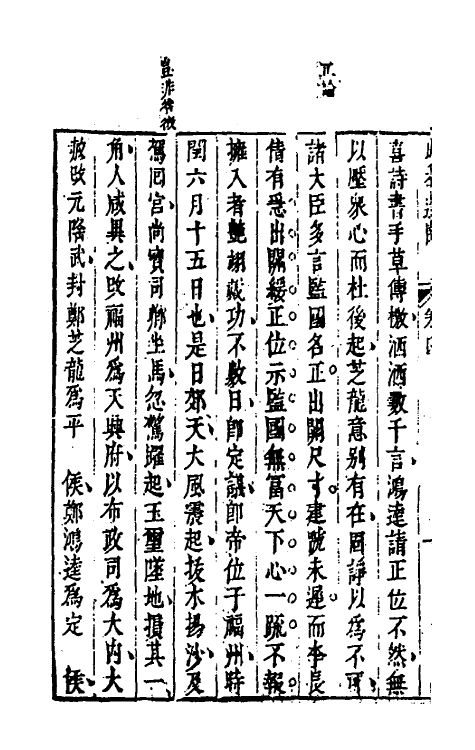 正論
豈非咎徵
喜詩書手草傳檄洒洒數千言鴻逵請正位不然無
以壓衆心而杜後起芝龍意别有在固諍以爲不可
諸大臣多言監國名正出關尺寸建號未遲而李長
倩有急出關緩正位示監國無富天下心一疏不報
擁入者艷翊戴功不數日即定議即帝位于福州時
閏六月十五日也是日郊天大風震起拔木揚沙及
駕回宮尚寳司鄉坐馬忽驚躍起玉璽墜地損其一
角人咸異之改福州爲天興府以布政司爲大内大
赦改元隆武封鄭芝龍爲平 侯鄭鴻逵爲定 侯